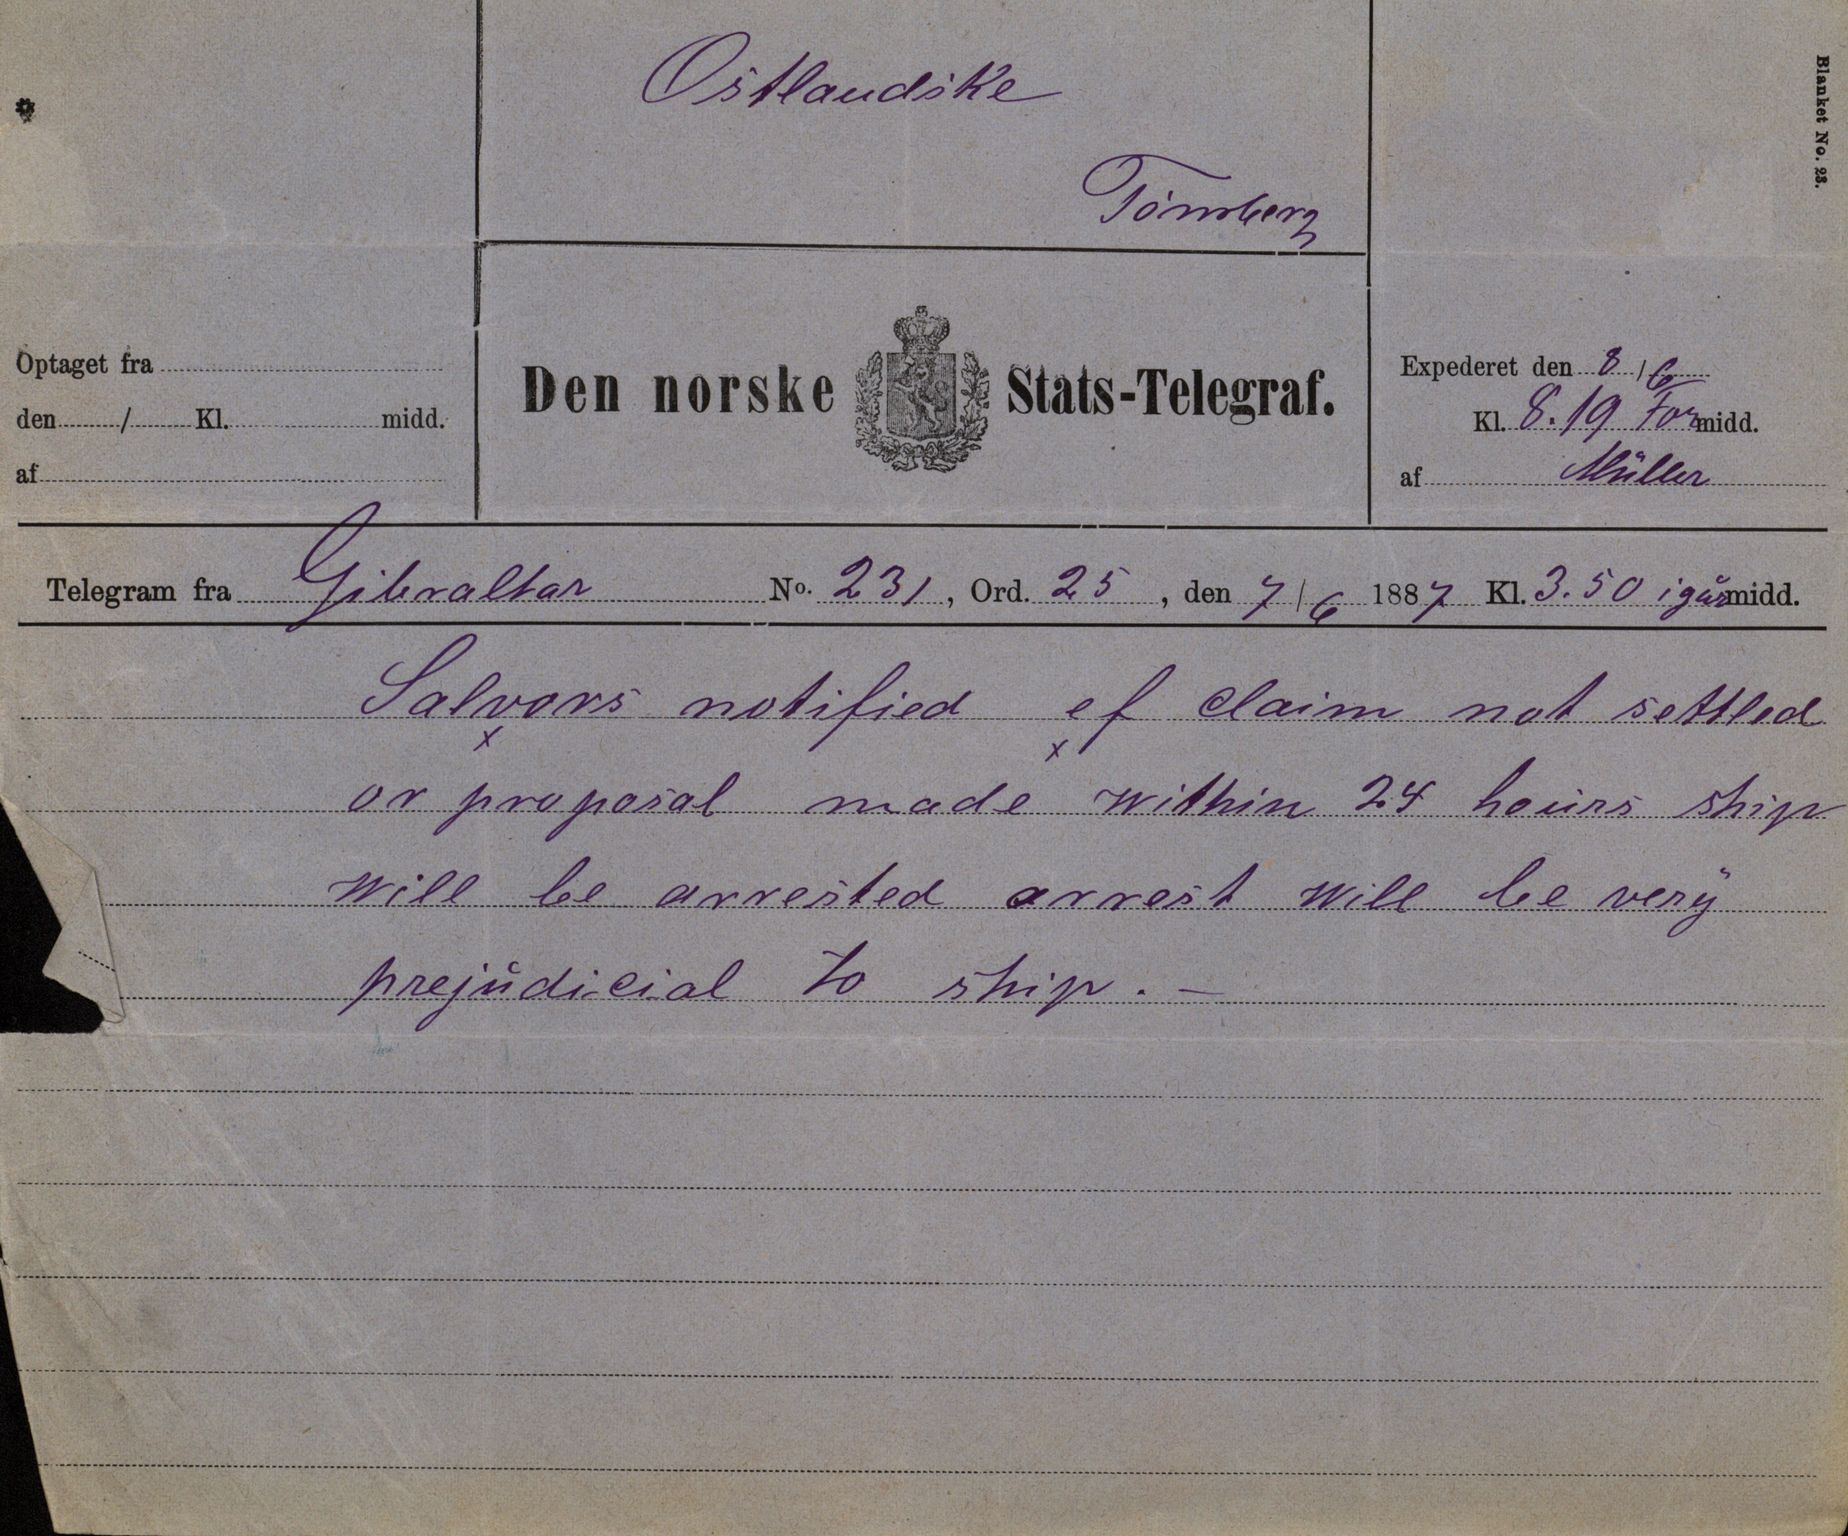 Blanket No. 23.
Ostlandske
Tönsberg
Optaget fra
den / Kl. midd.
af
Den norske Stats-Telegraf.
Expederet den 8/6
Kl. 8.19 Formidd.
af Müller
Telegram fra Gibraltar No. 231, Ord. 25, den 7/6 1887 Kl. 3.50 igårmidd.
Salvors notified ef claim not settled
x x
or proposal made within 24 hours ship
will be arrested arrest will be very
prejudicial to ship. —